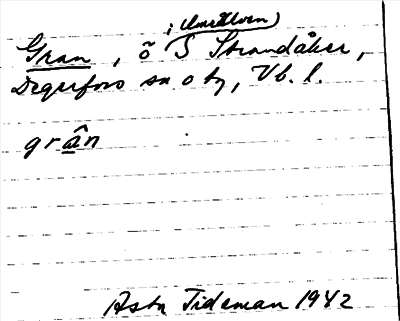 Gran, ö S Strandåker,
Degerfors sn o tg, Vb. l.
grâ̱n
Astr Tideman 1942